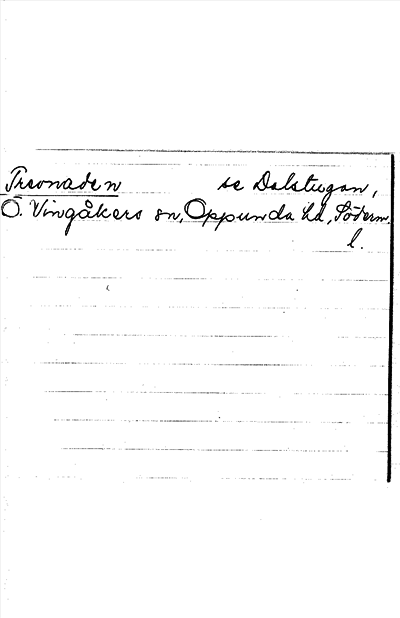 Treonaden se Dalstugan,
Ö. Vingåkers sn, Oppunda hd, Söderm.
l.